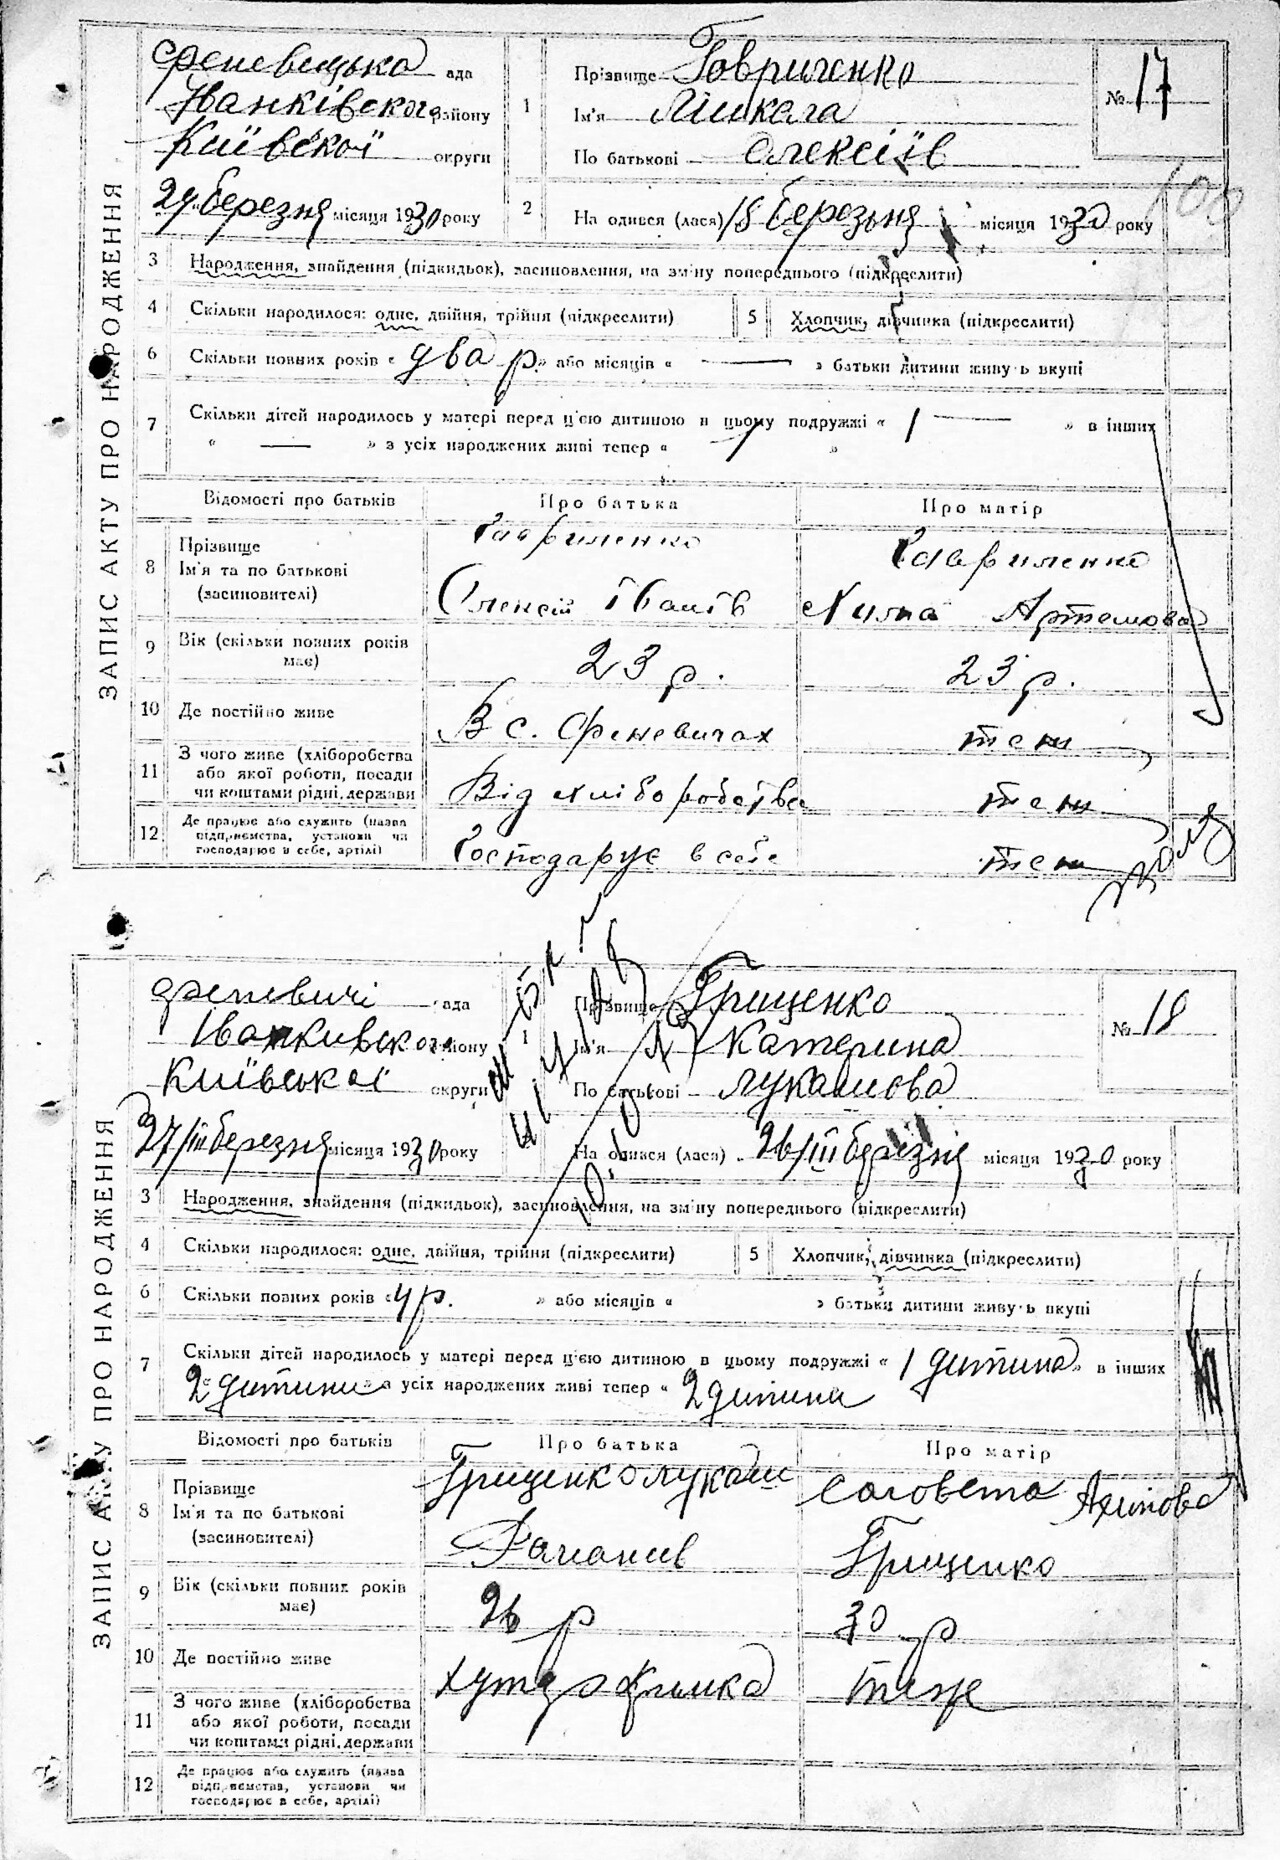 ЗАПИС АКТУ ПРО НАРОДЖЕННЯ
Феневецька рада
Іванківського району
Київської округи
29 березня місяця 1930 року
1 Прізвище Говриченко
Ім'я
По батькові Олексіїв
№ 17
2 На одився (лася) 18 березьня місяця 1930 року
3 Народження, знайдення (підкидьок), засиновлення, на зміну попереднього (підкреслити)
4 Скільки народилося: одне, двійня, трійня (підкреслити) 5 Хлопчик, дівчинка (підкреслити)
6 Скільки повних років « два р. » або місяців « — » батьки дитини живу ь вкупі
7 Скільки дітей народилось у матері перед цією дитиною в цьому подружжі « 1 — » в інших
« — » з усіх народжених живі тепер « 1 »
Відомості про батьків Про батька Про матір
8 Прізвище Гавриленко Гавриленко
Ім'я та по батькові
(засиновителі) Олексій Іванів Артемова
9 Вік (скільки повних років має) 23 р. 23 р.
10 Де постійно живе В с. Феневичах теж
11 З чого живе (хліборобства або якої роботи, посади чи коштами рідні, держави Від хліборобства теж
12 Де працює або служить (назва підприємства, установи чи господарює в себе, артілі) Господарує в себе теж
ЗАПИС АКТУ ПРО НАРОДЖЕННЯ
Феневичі рада
Іванкивского району
Київської округи
27/III березня місяця 1930 року
1 Прізвище Грищенко
Ім'я Катерина
По батькові Лукашова
№ 18
На одився (лася) 26/III березня місяця 1930 року
3 Народження, знайдення (підкидьок), засиновлення, на зміну попереднього (підкреслити)
4 Скільки народилося: одне, двійня, трійня (підкреслити) 5 Хлопчик, дівчинка (підкреслити)
6 Скільки повних років « 4 р. » або місяців « » батьки дитини живу ь вкупі
7 Скільки дітей народилось у матері перед цією дитиною в цьому подружжі « 1 дитина » в інших
« 2 дитини » з усіх народжених живі тепер « 2 дитина
Відомості про батьків Про батька Про матір
8 Прізвище Грищенко Лукаш
Ім'я та по батькові
(засиновителі) Грищенко
9 Вік (скільки повних років має) 26 р 30 р
10 Де постійно живе хутор теж
11 З чого живе (хліборобства або якої роботи, посади чи коштами рідні, держави
12 Де працює або служить (назва підприємства, установи чи господарює в себе, артілі)